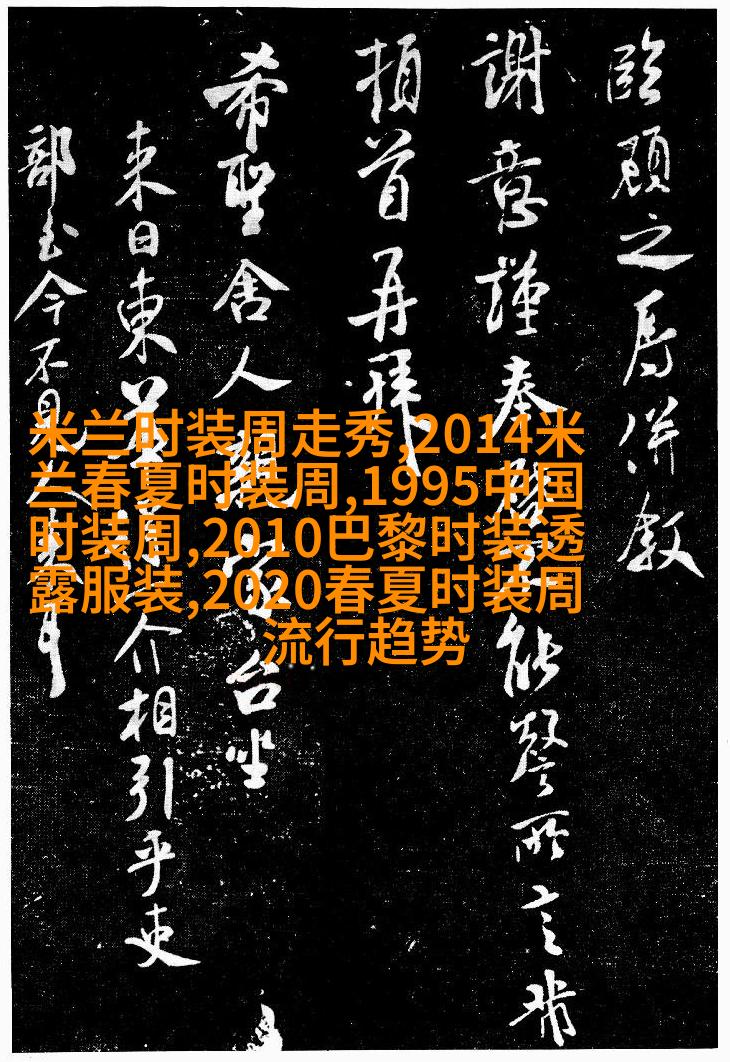 臨顧之辱併叙
謝意謹奉啓不能罄所言
頓首再拜
希聖舍人 台坐
来日東 介相引乎吏
部玉今不見
米兰时装周走秀,2014米
兰春夏时装周,1995中国
时装周,2010巴黎时装透
露服装,2020春夏时装周
流行趋势